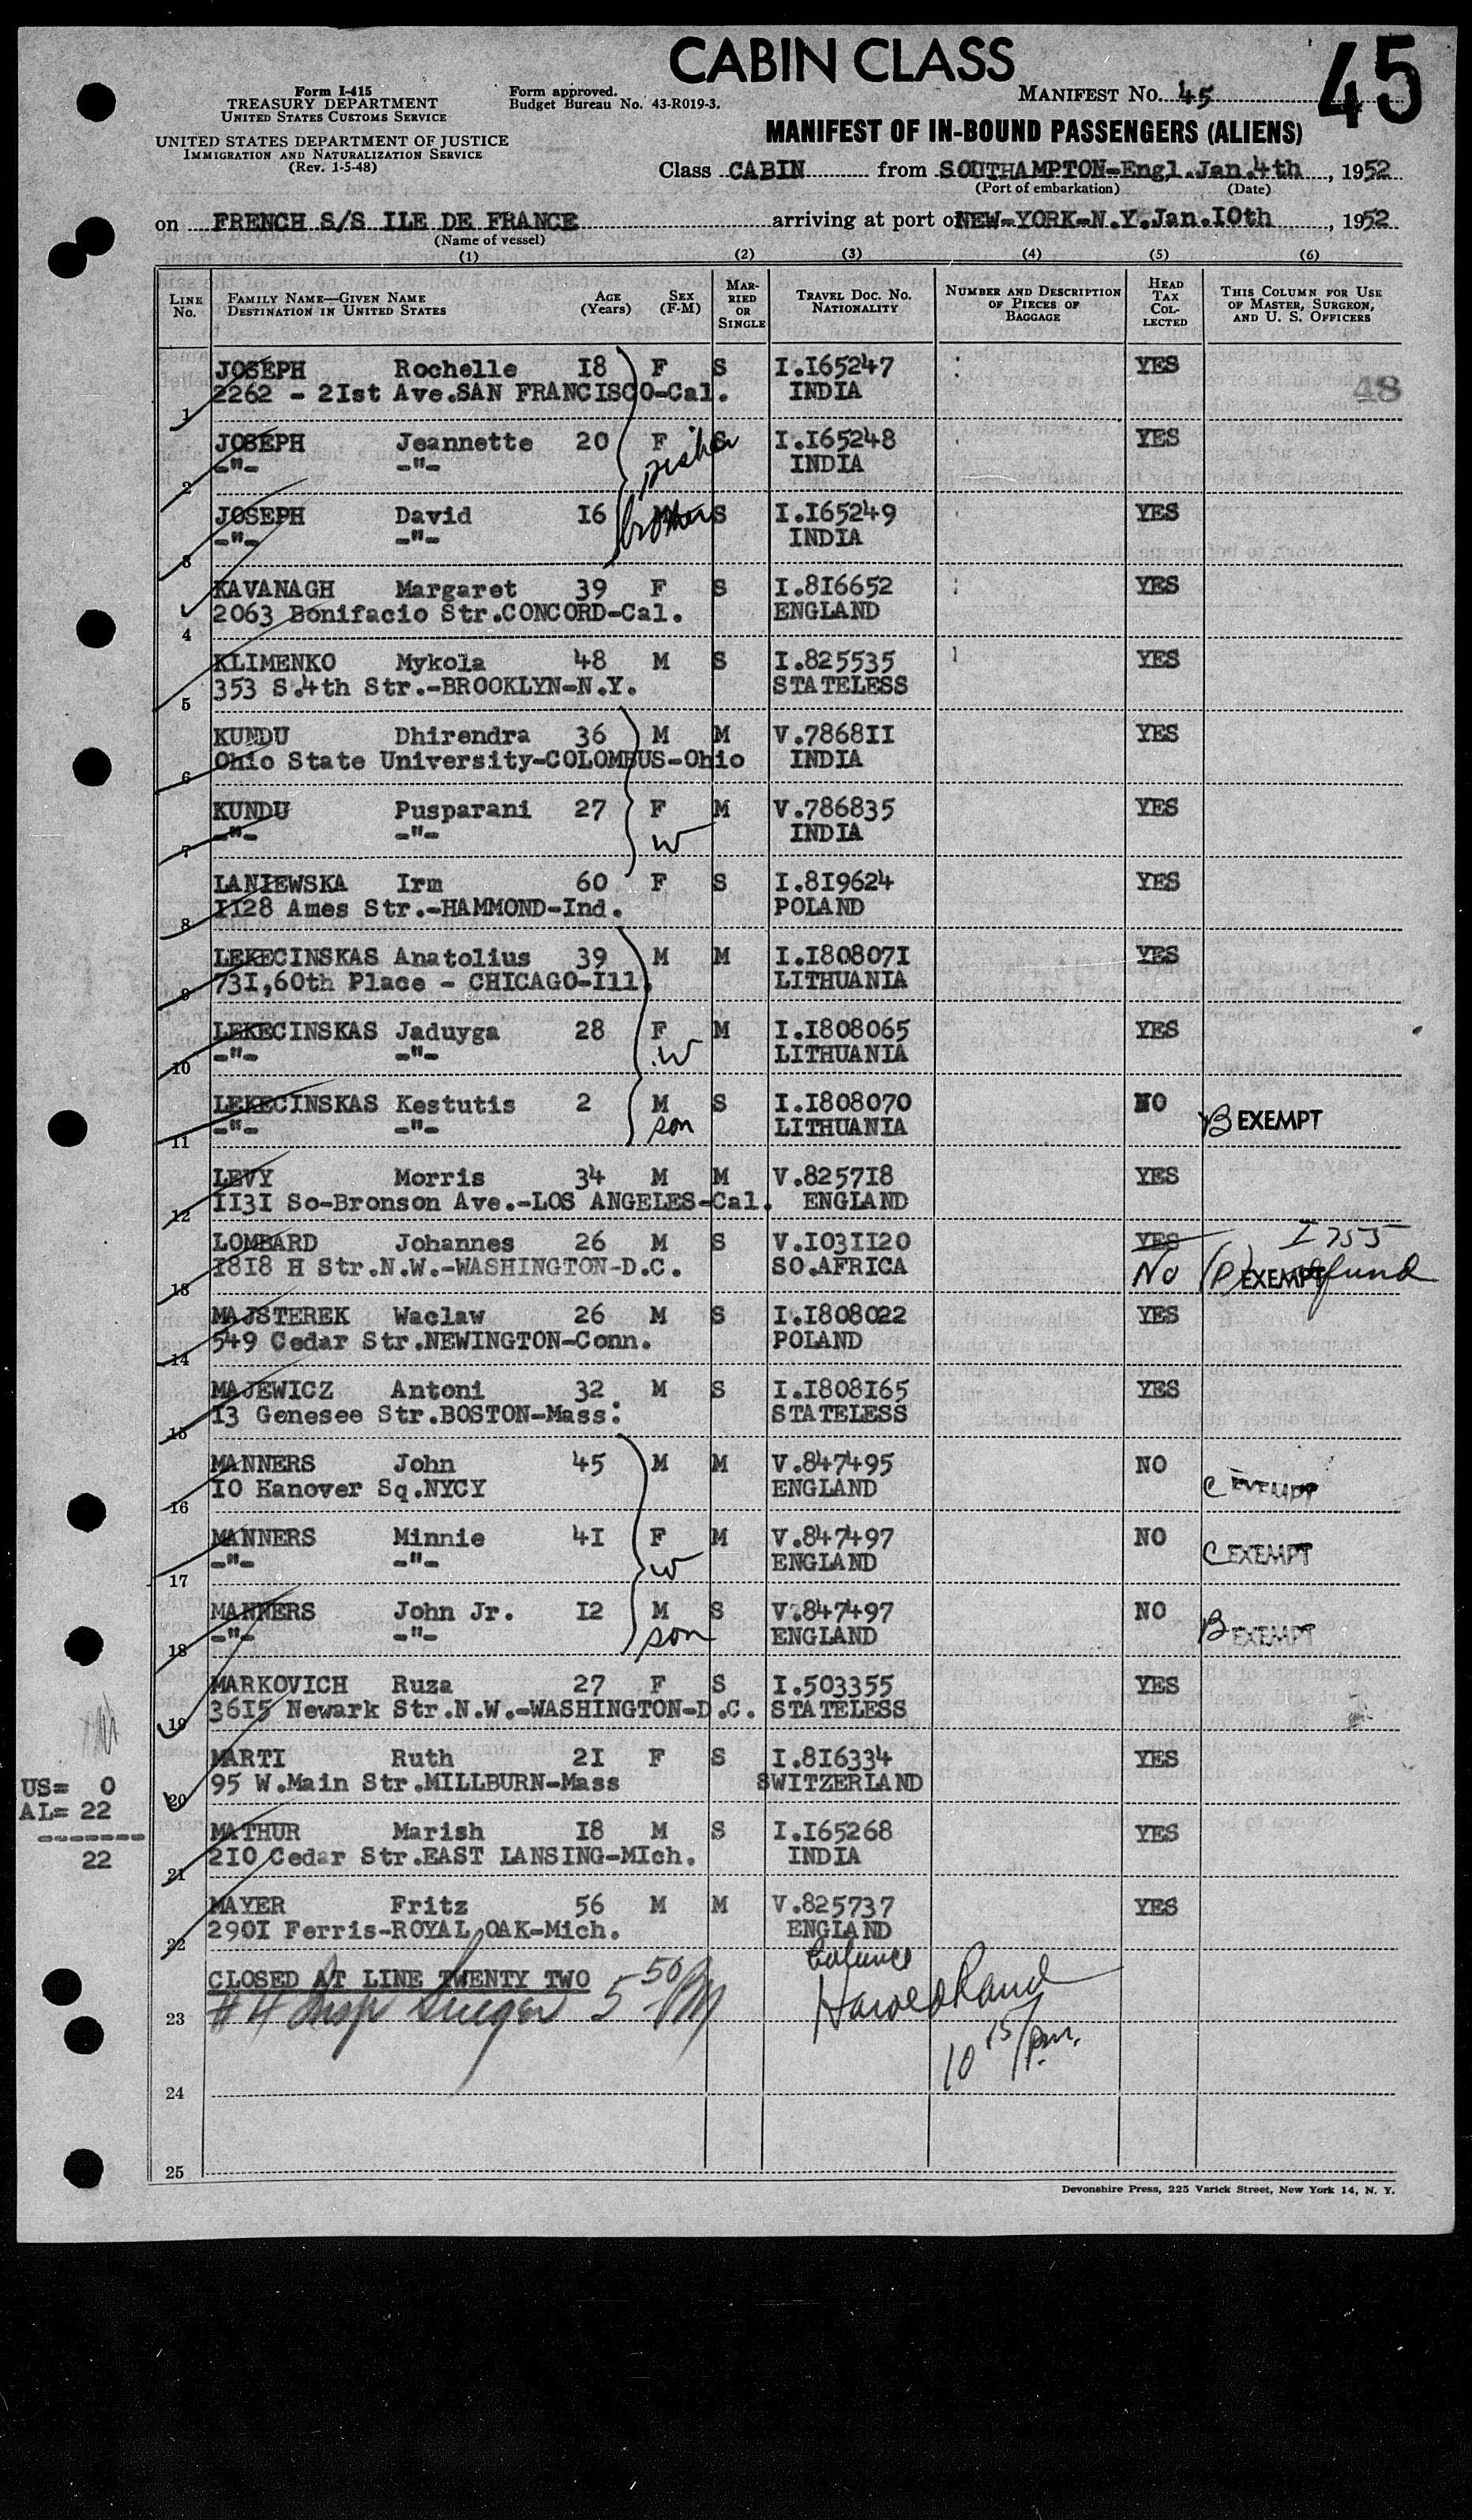 CABIN CLASS
45
Form I-415
TREASURY DEPARTMENT
UNITED STATES CUSTOMS SERVICE
UNITED STATES DEPARTMENT OF JUSTICE
IMMIGRATION AND NATURALIZATION SERVICE
(Rev. 1-5-48)
Form approved.
Budget Bureau No. 43-R019-3.
MANIFEST No. 45
MANIFEST OF IN-BOUND PASSENGERS (ALIENS)
Class CABIN from SOUTHAMPTON-Engl.Jan.4th, 1952
(Port of embarkation) (Date)
on FRENCH S/S ILE DE FRANCE arriving at port of NEW-YORK-N.Y.Jan.IOth, 1952
(Name of vessel)
(1) (2) (3) (4) (5) (6)
LINE No. FAMILY NAME—GIVEN NAME DESTINATION IN UNITED STATES AGE (Years) SEX (F-M) MARRIED OR SINGLE TRAVEL DOC. NO. NATIONALITY NUMBER AND DESCRIPTION OF PIECES OF BAGGAGE HEAD TAX COLLECTED THIS COLUMN FOR USE OF MASTER, SURGEON, AND U. S. OFFICERS
JOSEPH Rochelle I8 F S I.I65247 YES
1 2262 - 2Ist Ave.SAN FRANCISCO-Cal. INDIA 48
JOSEPH Jeannette 20 F S I.I65248 YES
2 -"- -"- sister INDIA
JOSEPH David I6 M S I.I65249 YES
3 -"- -"- brother INDIA
KAVANAGH Margaret 39 F S I.8I6652 YES
4 2063 Bonifacio Str.CONCORD-Cal. ENGLAND
KLIMENKO Mykola 48 M S I.825535 YES
5 353 S.4th Str.-BROOKLYN-N.Y. STATELESS
KUNDU Dhirendra 36 M M V.7868II YES
6 Ohio State University-COLOMBUS-Ohio INDIA
KUNDU Pusparani 27 F M V.786835 YES
7 -"- -"- W INDIA
LANIEWSKA Irm 60 F S I.8I9624 YES
8 II28 Ames Str.-HAMMOND-Ind. POLAND
LEKECINSKAS Anatolius 39 M M I.I80807I YES
9 73I,60th Place - CHICAGO-Ill. LITHUANIA
LEKECINSKAS Jaduyga 28 F M I.I808065 YES
10 -"- -"- W LITHUANIA
LEKECINSKAS Kestutis 2 M S I.I808070 NO
11 -"- -"- son LITHUANIA B EXEMPT
LEVY Morris 34 M M V.8257I8 YES
12 II3I So-Bronson Ave.-LOS ANGELES-Cal. ENGLAND
LOMBARD Johannes 26 M S V.I03II20 YES I 755
13 I8I8 H Str.N.W.-WASHINGTON-D.C. SO.AFRICA No (P) EXEMPT refund
MAJSTEREK Waclaw 26 M S I.I808022 YES
14 549 Cedar Str.NEWINGTON-Conn. POLAND
MAJEWICZ Antoni 32 M S I.I808I65 YES
15 I3 Genesee Str.BOSTON-Mass: STATELESS
MANNERS John 45 M M V.847495 NO
16 IO Hanover Sq.NYCY ENGLAND C EXEMPT
MANNERS Minnie 4I F M V.847497 NO
17 -"- -"- W ENGLAND C EXEMPT
MANNERS John Jr. I2 M S V.847497 NO
18 -"- -"- son ENGLAND B EXEMPT
MARKOVICH Ruza 27 F S I.503355 YES
19 36I5 Newark Str.N.W.-WASHINGTON-D.C. STATELESS
MARTI Ruth 2I F S I.8I6334 YES
20 95 W.Main Str.MILLBURN-Mass SWITZERLAND
US= 0
AL= 22
-------
22
MATHUR Marish I8 M S I.I65268 YES
21 2IO Cedar Str.EAST LANSING-MIch. INDIA
MAYER Fritz 56 M M V.825737 YES
22 290I Ferris-ROYAL OAK-Mich. ENGLAND
CLOSED AT LINE TWENTY TWO balance
23 #4 Insp 5 50 PM Harold Rand
10 15/pm.
24
25
Devonshire Press, 225 Varick Street, New York 14, N. Y.